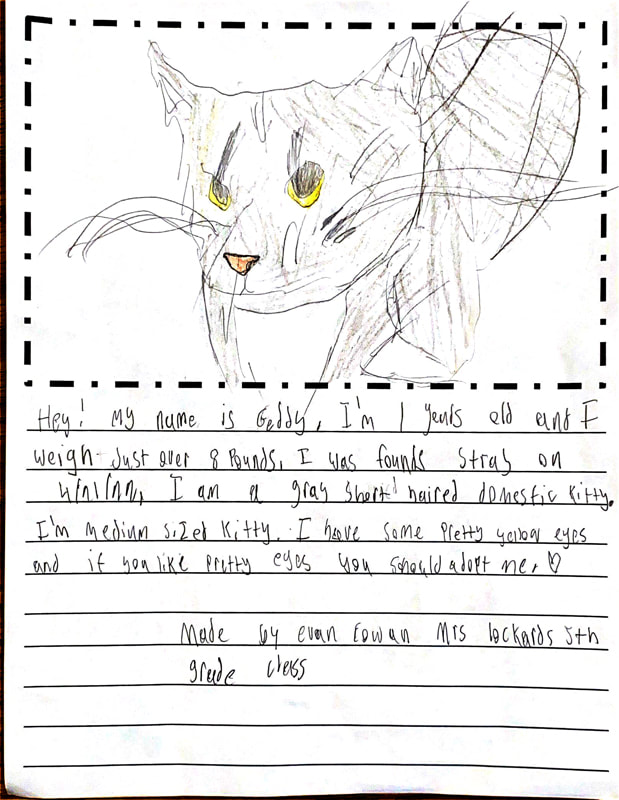 Hey! My name is Geddy, I'm 1 years old and I
weigh Just over 8 Pounds, I was founds Stray on
I am a gray short haired domestic kitty.
I'm medium sized kitty. I have some Pretty yellow eyes
and if you like Pretty eyes you should adopt me. ♡
Made by evan Mrs lockards 5th
grade class